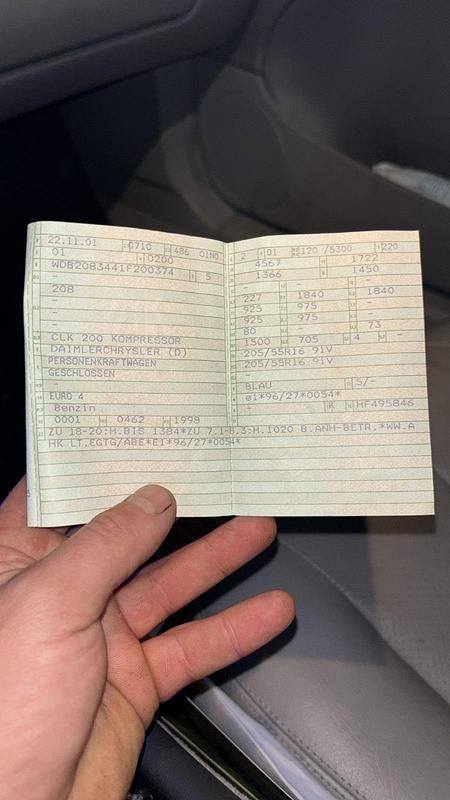 22.11.01 0710 486 01N0
01 0200
WDB2083441F200374 5
-
208
-
-
CLK 200 KOMPRESSOR
DAIMLERCHRYSLER (D)
PERSONENKRAFTWAGEN
GESCHLOSSEN
-
EURO 4
Benzin
0001 0462 1998
ZU 18-20:H.BIS 1384*ZU 7.1-8.3:H.1020 B.ANH-BETR.*WW.A
HK LT.EGTG/ABE*E1*96/27*0054*
2 01 120 /5300 220
4567 1722
1366 1450
- - -
227 1840 1840
925 975 -
925 975 -
80 - 73
1500 705 4 -
205/55R16 91V
205/55R16 91V
-
-
BLAU 5/-
e1*96/27*0054*
- K HF495846